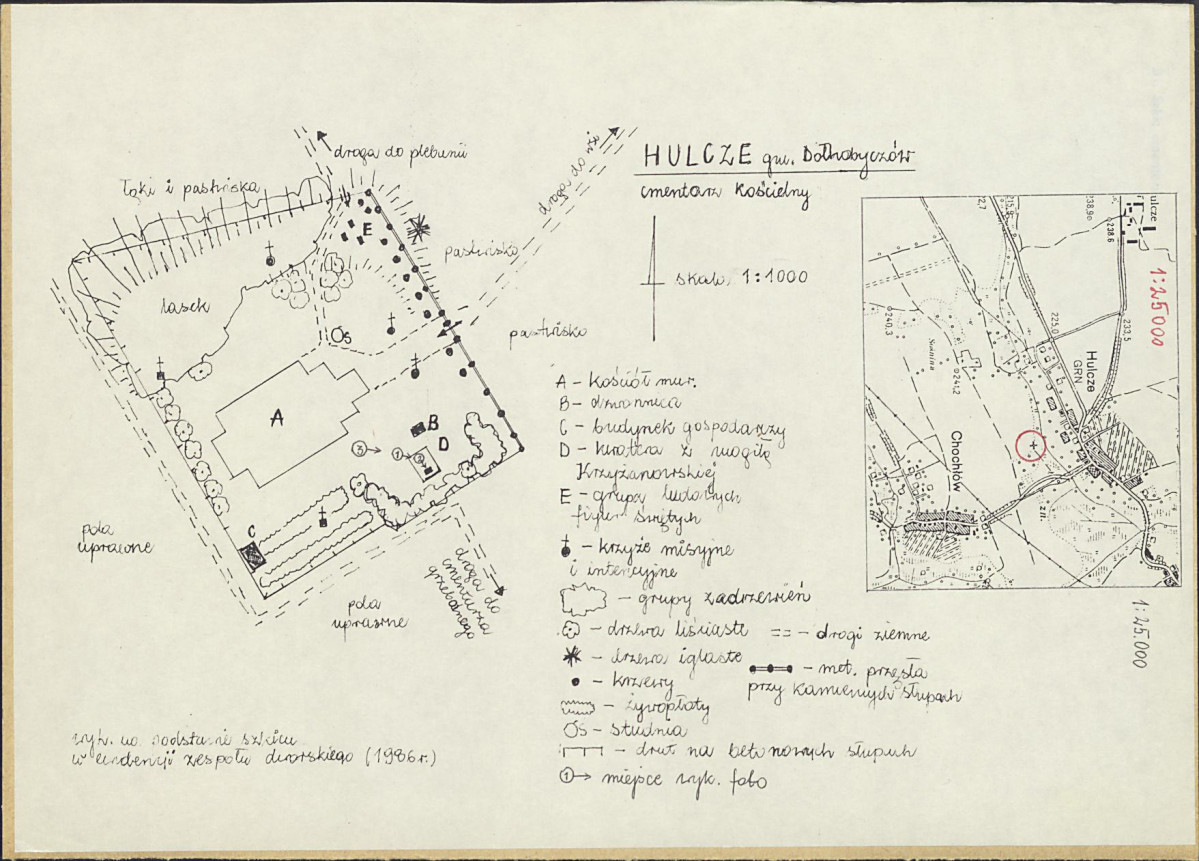 HULCZE gm. Dołhobyczów
cmentarz Kościelny
skala 1:1000
droga do plebanii
droga do wsi
łąki i pastwiska
E
pastwisko
lasek
Ós
pastwisko
A
B
D
3
1
2
C
pola
uprawne
pola
uprawne
droga do
cmentarza
grzebalnego
A - Kościół mur.
B - dzwonnica
C - budynek gospodarczy
D - kwatera z mogiłą
Krzyżanowskiej
E - grupa ludowych
figur świętych
- krzyże misyjne
i intencyjne
- grupy zadrzewień
- drzewa liściaste
== - drogi ziemne
- drzewa iglaste
- met. przęsła
przy kamiennych słupach
- krzewy
- żywopłoty
Ós - studnia
- drut na betonowych słupach
1 → miejsce wyk. foto
wyk. na podstawie szkicu
w ewidencji zespołu dworskiego (1986r.)
ulcze
238,6
238,9
215,9
2,7
1:25000
240,3
Świnina
241,2
225,0
233,5
Hulcze
GRN
Chochłów
zn.
1:25.000